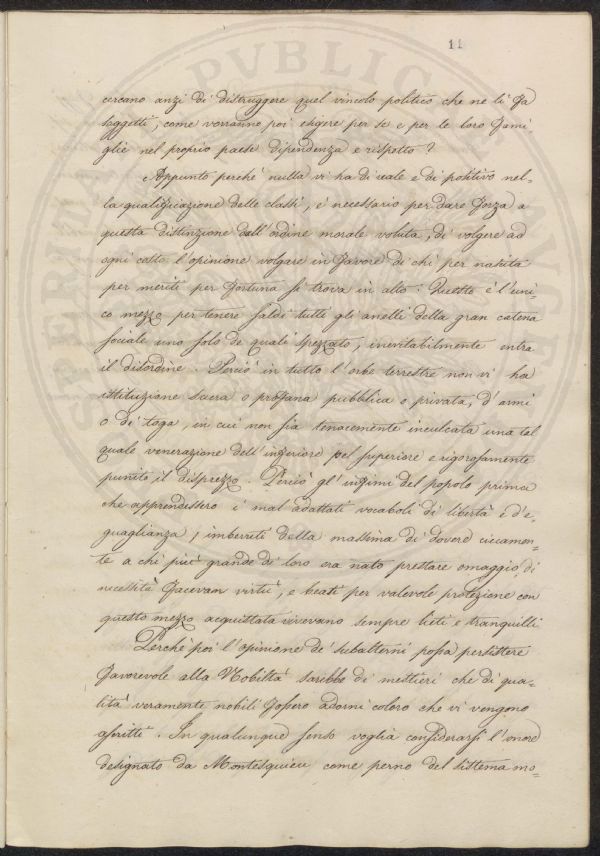 11
cercano anzi di distruggere quel vincolo politico che ne li fa
soggetti, come vorranno poi esigere per se e per le loro fami-
glie nel proprio paese dipendenza e rispetto?
Appunto perchè nulla vi ha di reale e di positivo nel-
la qualificazione delle classi, è necessario per dare forza a
questa distinzione dall'ordine morale voluta, di volgere ad
ogni costo l'opinione volgare in favore di chi per nascita
per meriti per fortuna si trova in alto: Questo è l'uni-
co mezzo per tenere saldi tutti gli anelli della gran catena
sociale uno solo de quali spezzato, inevitabilmente entra
il disordine. Perciò in tutto l'orbe terrestre non vi ha
istituzione sacra o profana pubblica o privata, d'armi
o di toga, in cui non sia tenacemente inculcata una tal
quale venerazione dell'inferiore pel superiore e rigorosamente
punito il disprezzo. Perciò gl'infimi del popolo prima
che apprendessero i mal adattati vocaboli di libertà e d'e-
guaglianza, imbevuti della massima di dovere ciecamen-
te a chi più grande di loro era nato prestare omaggio, di
necessità facevan virtù, e beati per valevole protezione con
questo mezzo acquistata vivevano sempre lieti e tranquilli
Perchè poi l'opinione de' subalterni possa persistere
favorevole alla Nobiltà sarebbe di mestieri che di qua-
lità veramente nobili fossero adorni coloro che vi vengono
ascritti. In qualunque senso voglia considerarsi l'onore
designato da Montesquieu come perno del sistema mo-